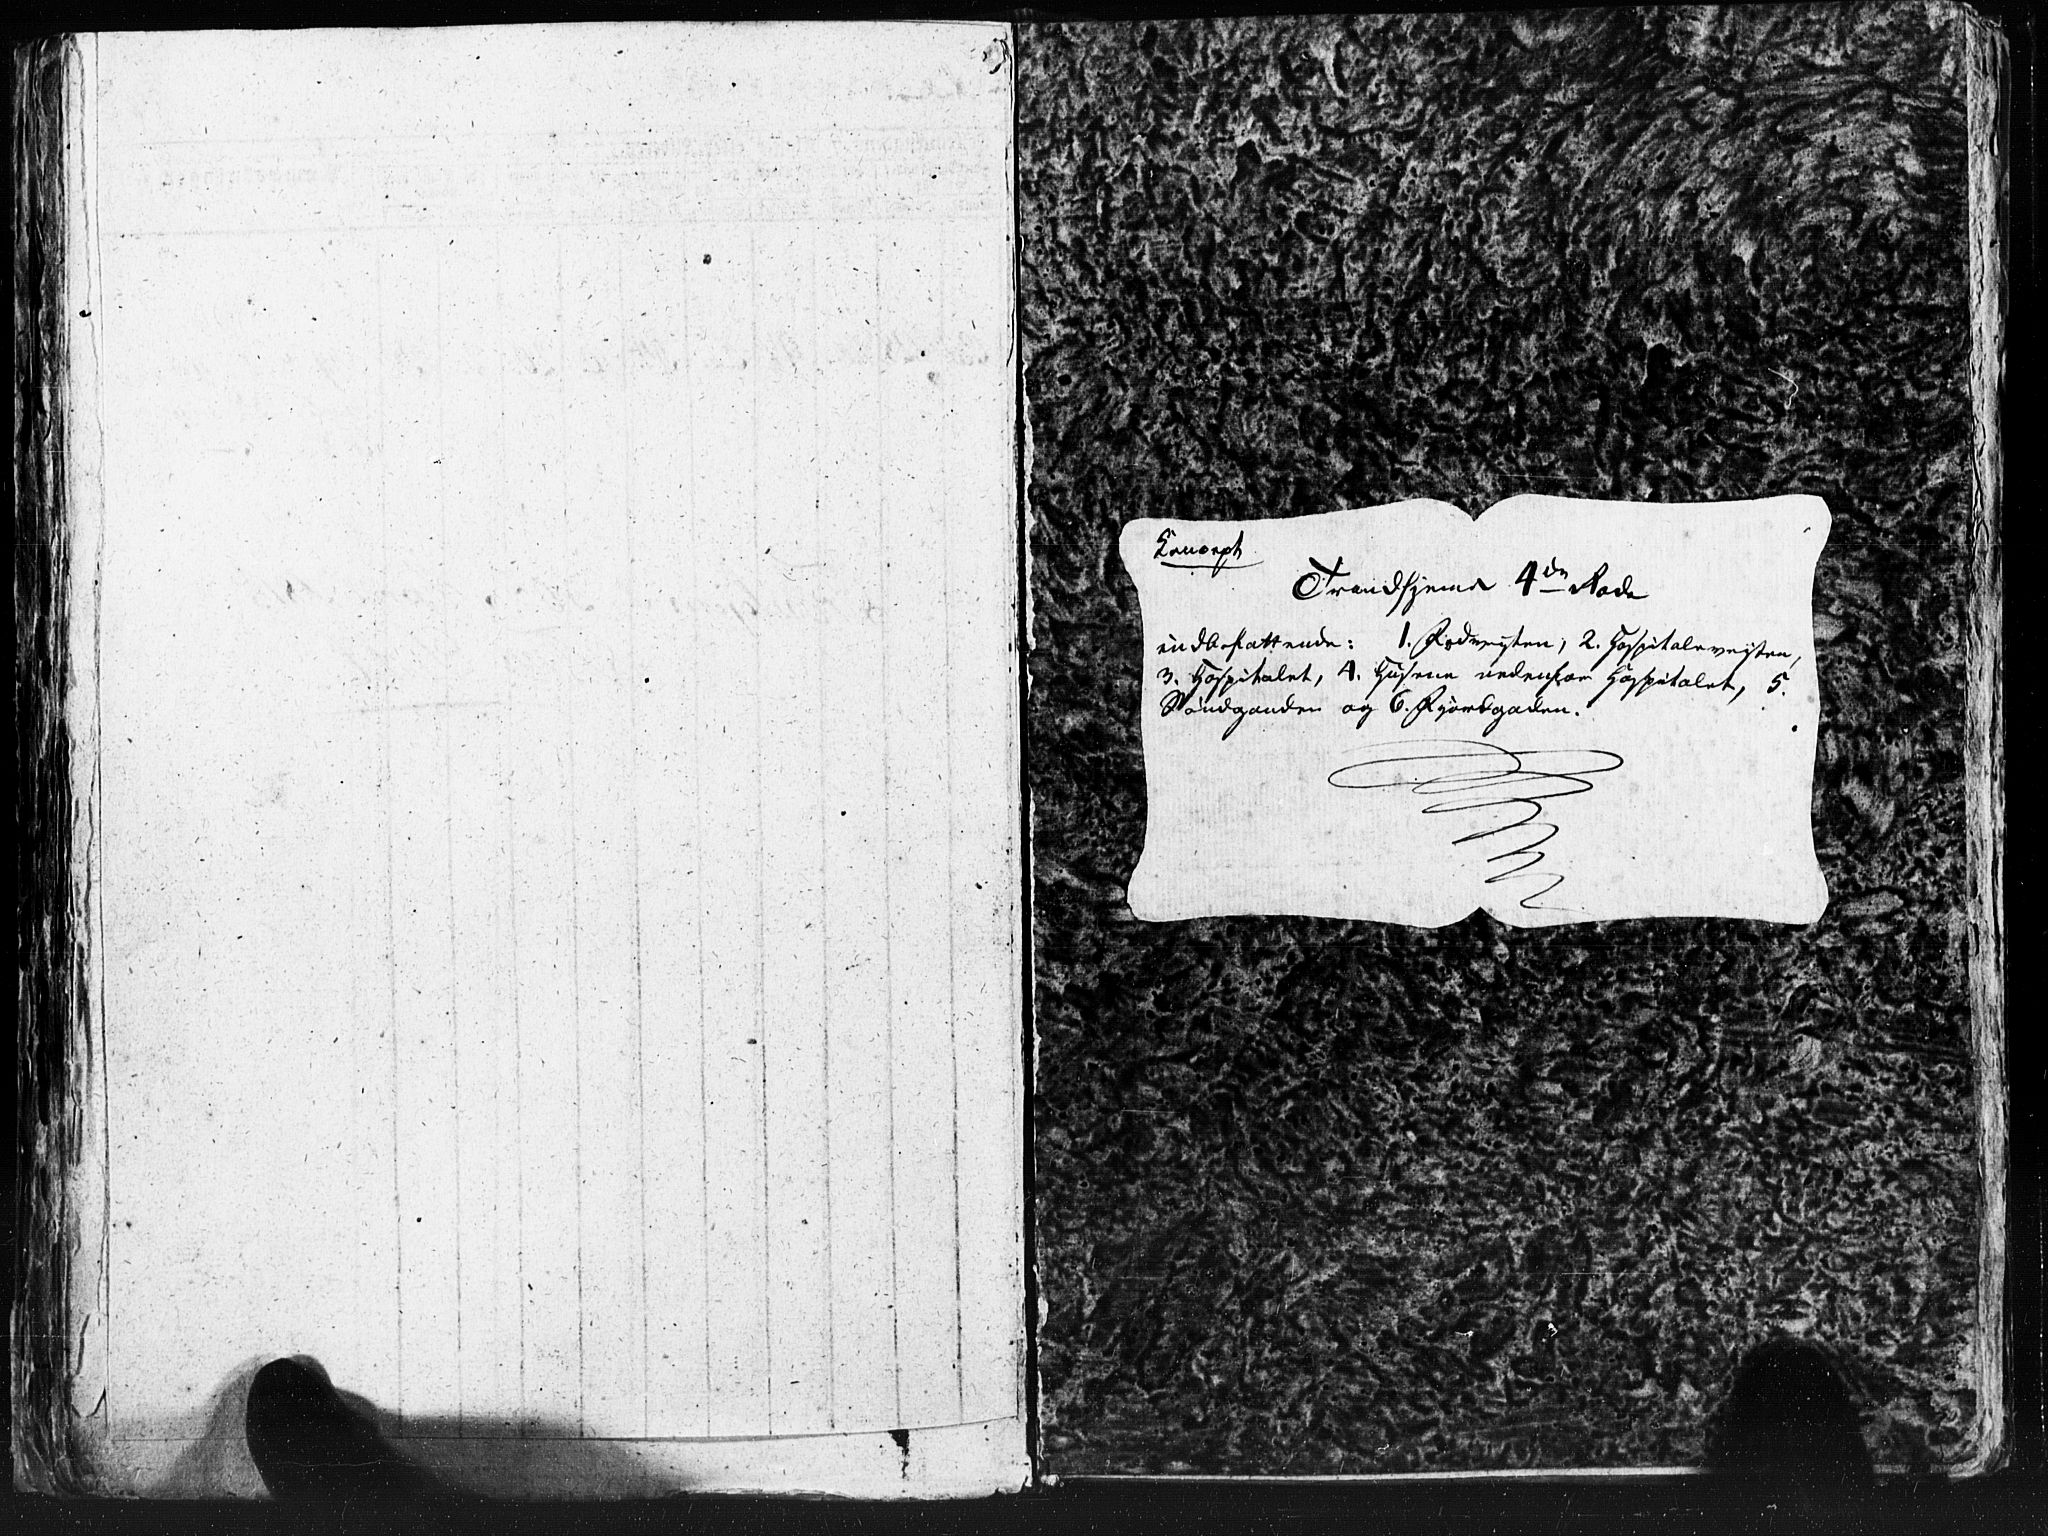 Koncept
Trondhjems 4de Rode
indbefattende: 1. Rodveiten, 2. Hospitalsveiten,
3. Hospitalet, 4. Husene nedenfor Hospitalet, 5.
Sandgaden og 6. Fjordgaden.